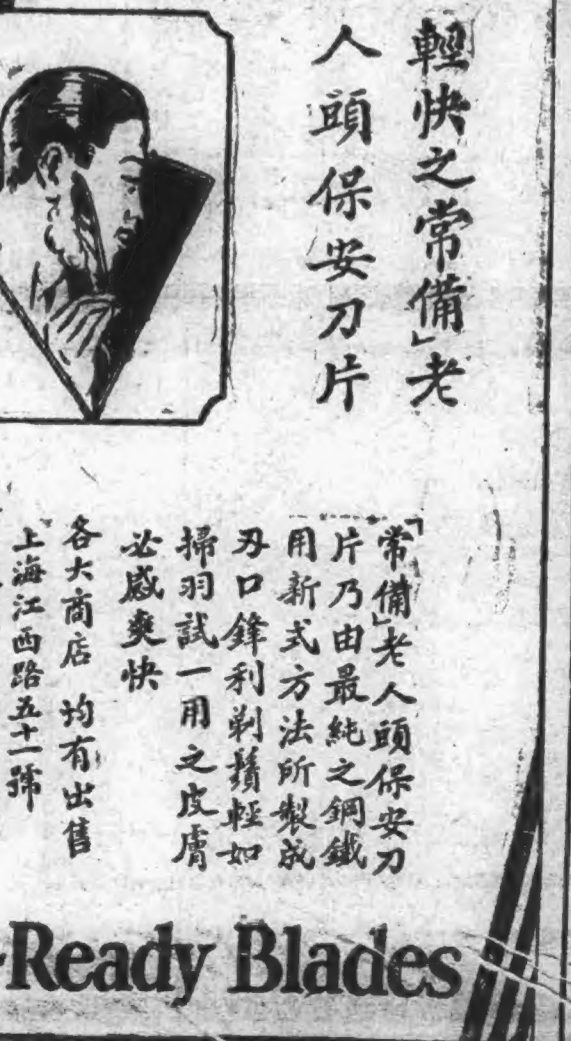 輕快之常備」老
人頭保安刀片
「常備」老人頭保安刀
片乃由最純之鋼鐵
用新式方法所製成
刃口鋒利剃鬚輕如
掃羽試一用之皮膚
必感爽快
各大商店 均有出售
上海江西路五十一號
-Ready Blades